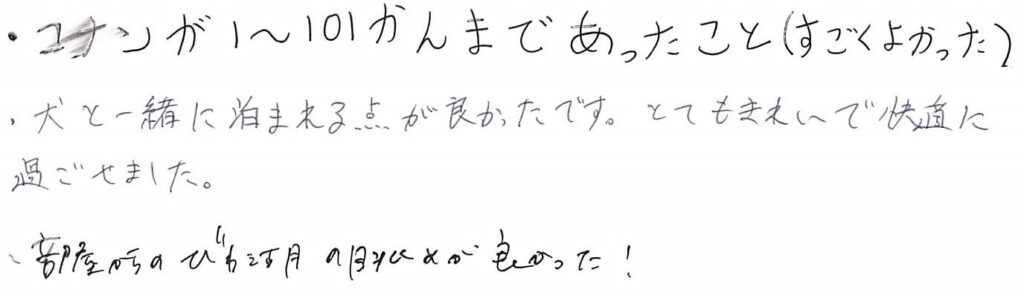 ・コナンが1〜101かんまであったこと(すごくよかった)
・犬と一緒に泊まれる点が良かったです。とてもきれいで快適に
過ごせました。
・部屋からのびわ湖の眺めが良かった!